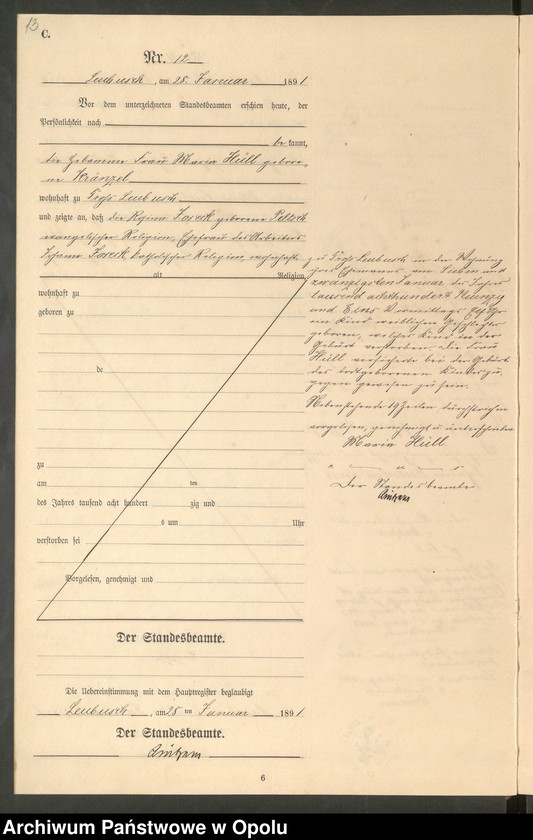 13
C.
Nr. 12
Leubusch, am 28. Januar 1891
Vor dem unterzeichneten Standesbeamten erschien heute, der
Persönlichkeit nach
be kannt,
die Hebamme Frau Maria Hüll gebore-
ne
wohnhaft zu Groß Leubusch
und zeigte an, daß die geborene
evangelischer Religion, Ehefrau des Arbeiters
Johann katholischer Religion, wohnhaft
alt Religion,
wohnhaft zu
geboren zu
de
zu
am ten
des Jahres tausend acht hundert zig und
s um Uhr
verstorben sei
Vorgelesen, genehmigt und
zu Groß Leubusch in der Wohnung
ihres Ehemannes, am sieben und
zwanzigsten Januar des Jahres
tausend achthundert Neunzig
und Eins Vormittags Uhr
ein Kind weiblichen Geschlechts
geboren, welches Kind in der
Geburt verstorben. Die Frau
Hüll versicherte bei der Geburt
des todtgeborenen Kindes zu-
gegen gewesen zu sein.
Nebenstehende 19 Zeilen durchstrichen
vorgelesen, genehmigt u. unterschrieben
Maria Hüll
Der Standesbeamte
Der Standesbeamte.
Die Uebereinstimmung mit dem Hauptregister beglaubigt
Leubusch, am 28 ten Januar 1891
Der Standesbeamte.
6
Archiwum Państwowe w Opolu